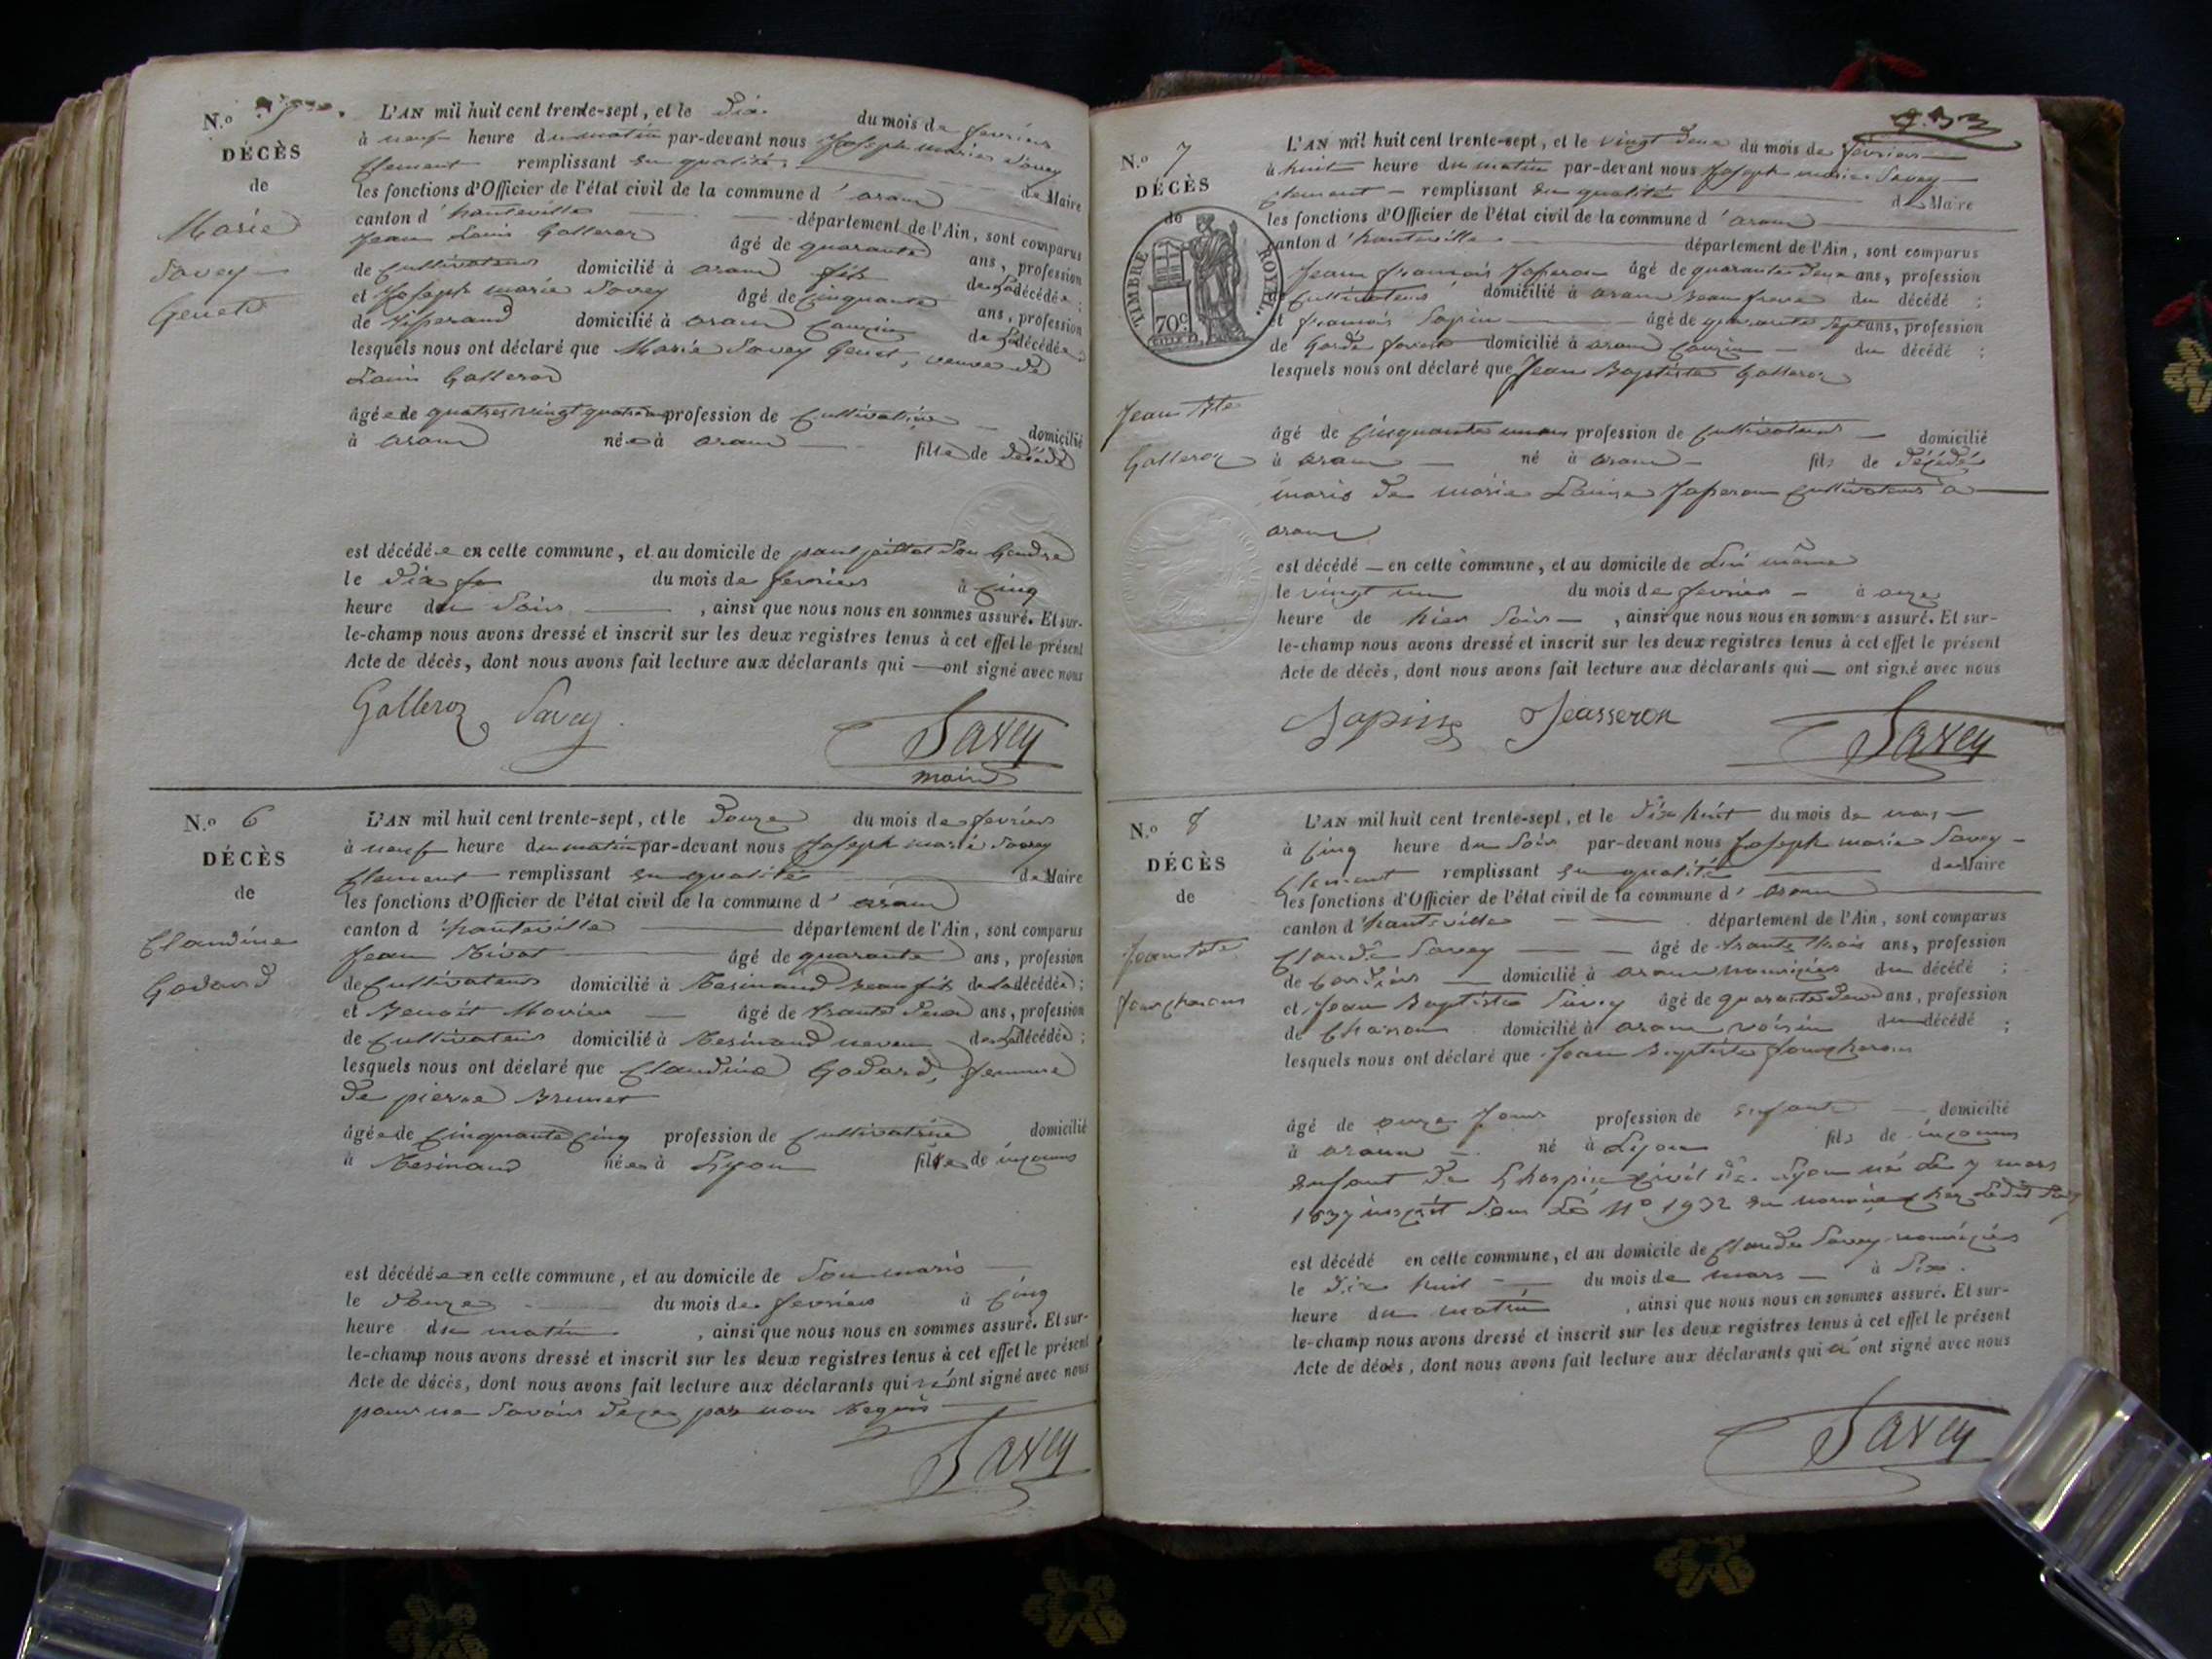 N.o 5
DÉCÈS
de
Marie
Savey
Genet
L'AN mil huit cent trente-sept, et le Dix du mois de fevrier
à neuf heure du matin par-devant nous Joseph marie Savey
Clement remplissant en qualité de Maire
les fonctions d'Officier de l'état civil de la commune d' aran
canton d' hauteville département de l'Ain, sont comparus
Jean Louis Galleroz âgé de quarante ans, profession
de Cultivateur domicilié à aran fils de La décédée ;
et Joseph marie Savey âgé de Cinquante ans, profession
de domicilié à aran Cousin de La décédée
lesquels nous ont déclaré que Marie Savey Genet, veuve de
Louis Galleroz
âgée de quatres vingt quatre ans profession de Cultivatrice domicilié
à aran née à aran fille de décédé
est décédée en cette commune, et au domicile de paul pillat Son Gendre
le Dix du mois de fevrier à Cinq
heure du Soir , ainsi que nous nous en sommes assuré. Et sur-
le-champ nous avons dressé et inscrit sur les deux registres tenus à cet effet le présent
Acte de décès, dont nous avons fait lecture aux déclarants qui — ont signé avec nous
Galleroz Savey Savey
maire
N.o 6
DÉCÈS
de
Claudine
Godard
L'AN mil huit cent trente-sept, et le Douze du mois de fevrier
à neuf heure du matin par-devant nous Joseph marie Savey
Clement remplissant en qualité de Maire
les fonctions d'Officier de l'état civil de la commune d' aran
canton d' hauteville département de l'Ain, sont comparus
Jean Nivot âgé de quarante ans, profession
de Cultivateur domicilié à Resinand beau fils de La décédée ;
et Benoit Movier âgé de trante deux ans, profession
de Cultivateur domicilié à Resinand neveu de La décédée ;
lesquels nous ont déclaré que Claudine Godard, femme
De pierre Brunet
âgée de Cinquante Cinq profession de Cultivatrice domicilié
à Resinand née à Lyon fille de inconnus
est décédée en cette commune, et au domicile de Son maris
le Douze du mois de fevrier à Cinq
heure du matin , ainsi que nous nous en sommes assuré. Et sur-
le-champ nous avons dressé et inscrit sur les deux registres tenus à cet effet le présent
Acte de décès, dont nous avons fait lecture aux déclarants qui n'ont signé avec nous
pour ne Savoir De ce par nous Requis
Savey
N.o 7
DÉCÈS
de
TIMBRE ROYAL
70c
Jean Bte
Galleroz
L'AN mil huit cent trente-sept, et le vingt Deux du mois de fevrier
à huit heure du matin par-devant nous Joseph marie Savey
Clement — remplissant en qualité de Maire
les fonctions d'Officier de l'état civil de la commune d' aran
canton d' hauteville département de l'Ain, sont comparus
Jean francois Jaseron âgé de quarante Deux ans, profession
Cultivateur domicilié à aran beau frere du décédé ;
et francois Sapin âgé de quarante Sept ans, profession
de Garde forest domicilié à aran Cousin du décédé ;
lesquels nous ont déclaré que Jean Baptiste Galleroz
âgé de Cinquante un ans profession de Cultivateur domicilié
à aran né à aran fils de Décédés
maris De marie Louise Jaseron Cultivateur a
aran
est décédé — en cette commune, et au domicile de Lui même
le vingt un du mois de fevrier à onze
heure de hier Soir — , ainsi que nous nous en sommes assuré. Et sur-
le-champ nous avons dressé et inscrit sur les deux registres tenus à cet effet le présent
Acte de décès, dont nous avons fait lecture aux déclarants qui — ont signé avec nous
Sapin Jeasseron Savey
N.o 8
DÉCÈS
de
L'AN mil huit cent trente-sept, et le Dix huit du mois de mars
à Cinq heure du Soir par-devant nous Joseph marie Savey
Clement remplissant en qualité de Maire
les fonctions d'Officier de l'état civil de la commune d' aran
canton d' hauteville département de l'Ain, sont comparus
Claude Savey âgé de trante trois ans, profession
de domicilié à aran nouricier du décédé ;
et Jean Baptiste Savey âgé de quarante Deux ans, profession
de domicilié à aran voisin du décédé ;
lesquels nous ont déclaré que Jean Baptiste
âgé de onze Jour profession de enfant domicilié
à aran né à Lyon fils de inconnus
enfant De L'hospice Civil De Lyon né Le 7 mars
1837 inscrit Sous Le No 1932 en chez Ledit Savey
est décédé en cette commune, et au domicile de Claude Savey nouricier
le Dix huit du mois de mars à Six
heure du matin , ainsi que nous nous en sommes assuré. Et sur-
le-champ nous avons dressé et inscrit sur les deux registres tenus à cet effet le présent
Acte de décès, dont nous avons fait lecture aux déclarants qui ont signé avec nous
Savey